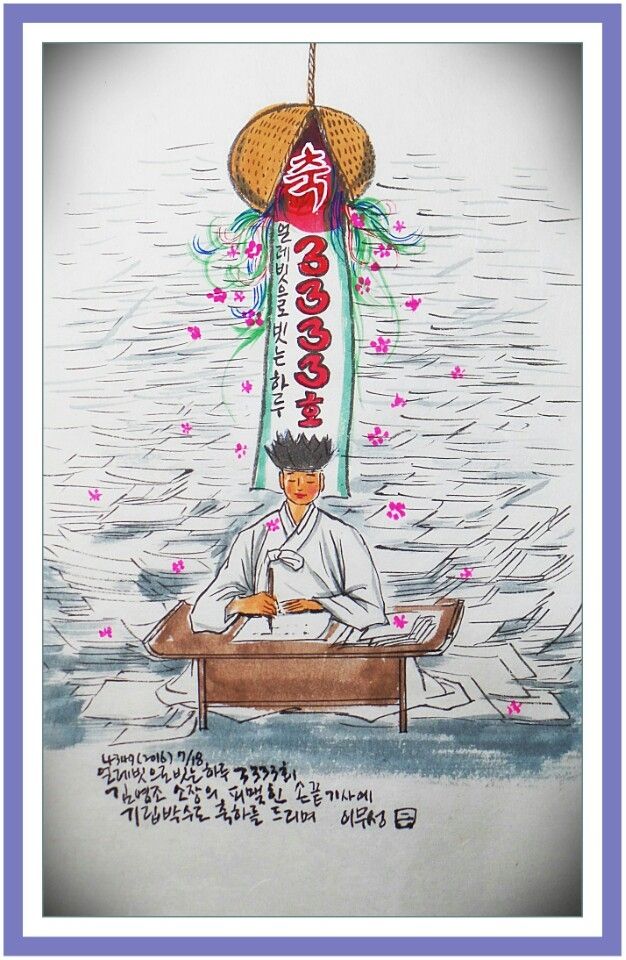 축
얼레빗으로 빗는 하루
3333호
4349(2016) 7/18,
얼레빗으로 빗는 하루 3333회
김영조 소장의 피맺힌 손끝 기사에
기립박수로 축하를 드리며 이무성